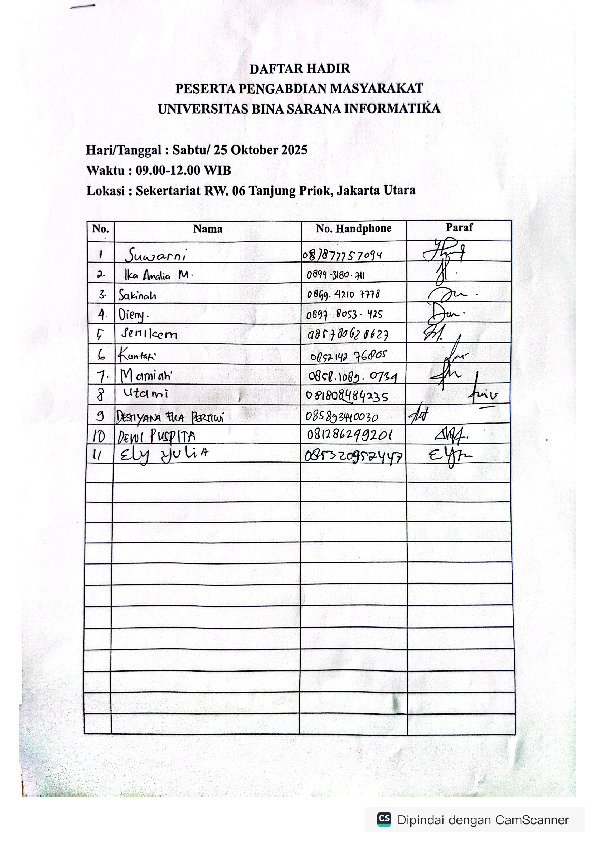 DAFTAR HADIR
PESERTA PENGABDIAN MASYARAKAT
UNIVERSITAS BINA SARANA INFORMATIKA
Hari/Tanggal : Sabtu/ 25 Oktober 2025
Waktu : 09.00-12.00 WIB
Lokasi : Sekertariat RW. 06 Tanjung Priok, Jakarta Utara
No. Nama No. Handphone Paraf
1 Suwarni 087877757094
2. Ika Amalia M. 0899-3180-711
3. Sakinah 0869. 4210 7778
4. Dieny. 0897. 8053. 425
5 Senikem 085780628627
6 085214276805
7. Mamiah 0858.1089.0734
8 Utami 081808484235
9 DESTYANA EKA PERTIWI 085893410030
10 DEWI PUSPITA 081286299201
11 Ely Yulia 085320952447
CS Dipindai dengan CamScanner